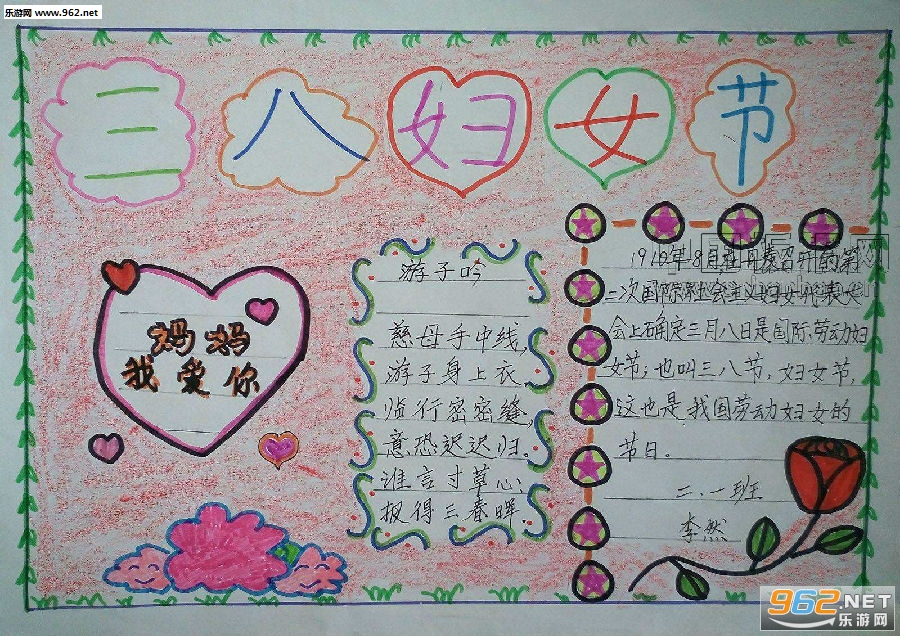 乐游网 www.962.net
三八妇女节
妈妈
我爱你
游子吟
慈母手中线,
游子身上衣
临行密密缝,
意恐迟迟归。
谁言寸草心
报得三春晖
1910年8月在丹麦召开的第
二次国际社会主义妇女代表大
会上确定三月八日是国际劳动妇
女节;也叫三八节,妇女节,
这也是我国劳动妇女的
节日。
二.一班
李然
962.NET
乐游网